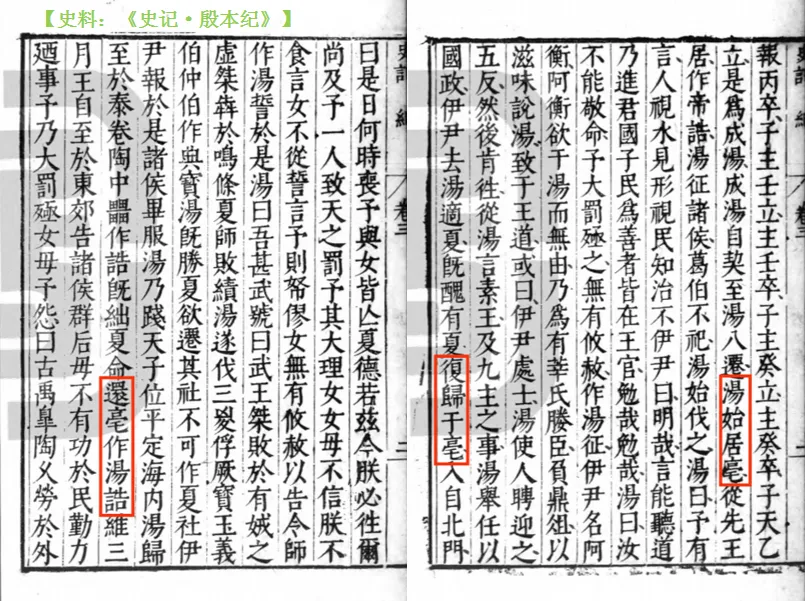 【史料：《史记·殷本纪》】
卷三
報丙卒、子主壬立、主壬卒、子主癸立、主癸卒子天乙
立是爲成湯成湯自契至湯八遷湯始居亳從先王
居作帝誥湯征諸侯葛伯不祀湯始伐之湯曰予有
言人視水見形視民知治不伊尹曰明哉言能聽道
乃進君國子民爲善者皆在王官勉哉勉哉湯曰汝
不能敬命予大罰殛之無有攸赦作湯征伊尹名阿
衡阿衡欲干湯而無由乃爲有莘氏媵臣負鼎俎以
滋味說湯致于王道或曰伊尹處士湯使人聘迎之
五反然後肯往從湯言素王及九主之事湯舉任以
國政伊尹去湯適夏旣醜有夏復歸于亳入自北門
卷三
曰是日何時喪予與女皆亾夏德若茲今朕必往爾
尚及予一人致天之罰予其大理女女毋不信朕不
食言女不從誓言予則帑僇女無有攸赦以告令師
作湯誓於是湯曰吾甚武號曰武王桀敗於有娀之
虛桀犇於鳴條夏師敗績湯遂伐三㚇俘厥寶玉義
伯仲伯作典寶湯旣勝夏欲遷其社不可作夏社伊
尹報於是諸侯畢服湯乃踐天子位平定海內湯歸
至於泰卷陶中𤳹作誥旣絀夏命還亳作湯誥維三
月王自至於東郊告諸侯群后毋不有功於民勤力
廼事予乃大罰殛女毋予怨曰古禹皋陶乆勞於外